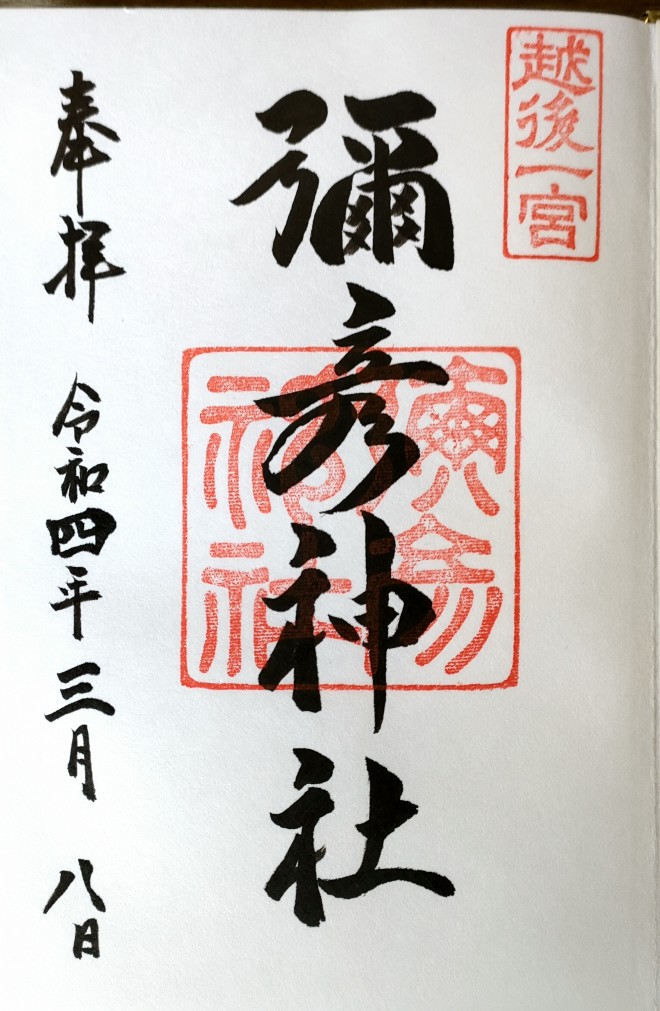 越後一宮
彌彦神社
奉拝
令和四年三月八日